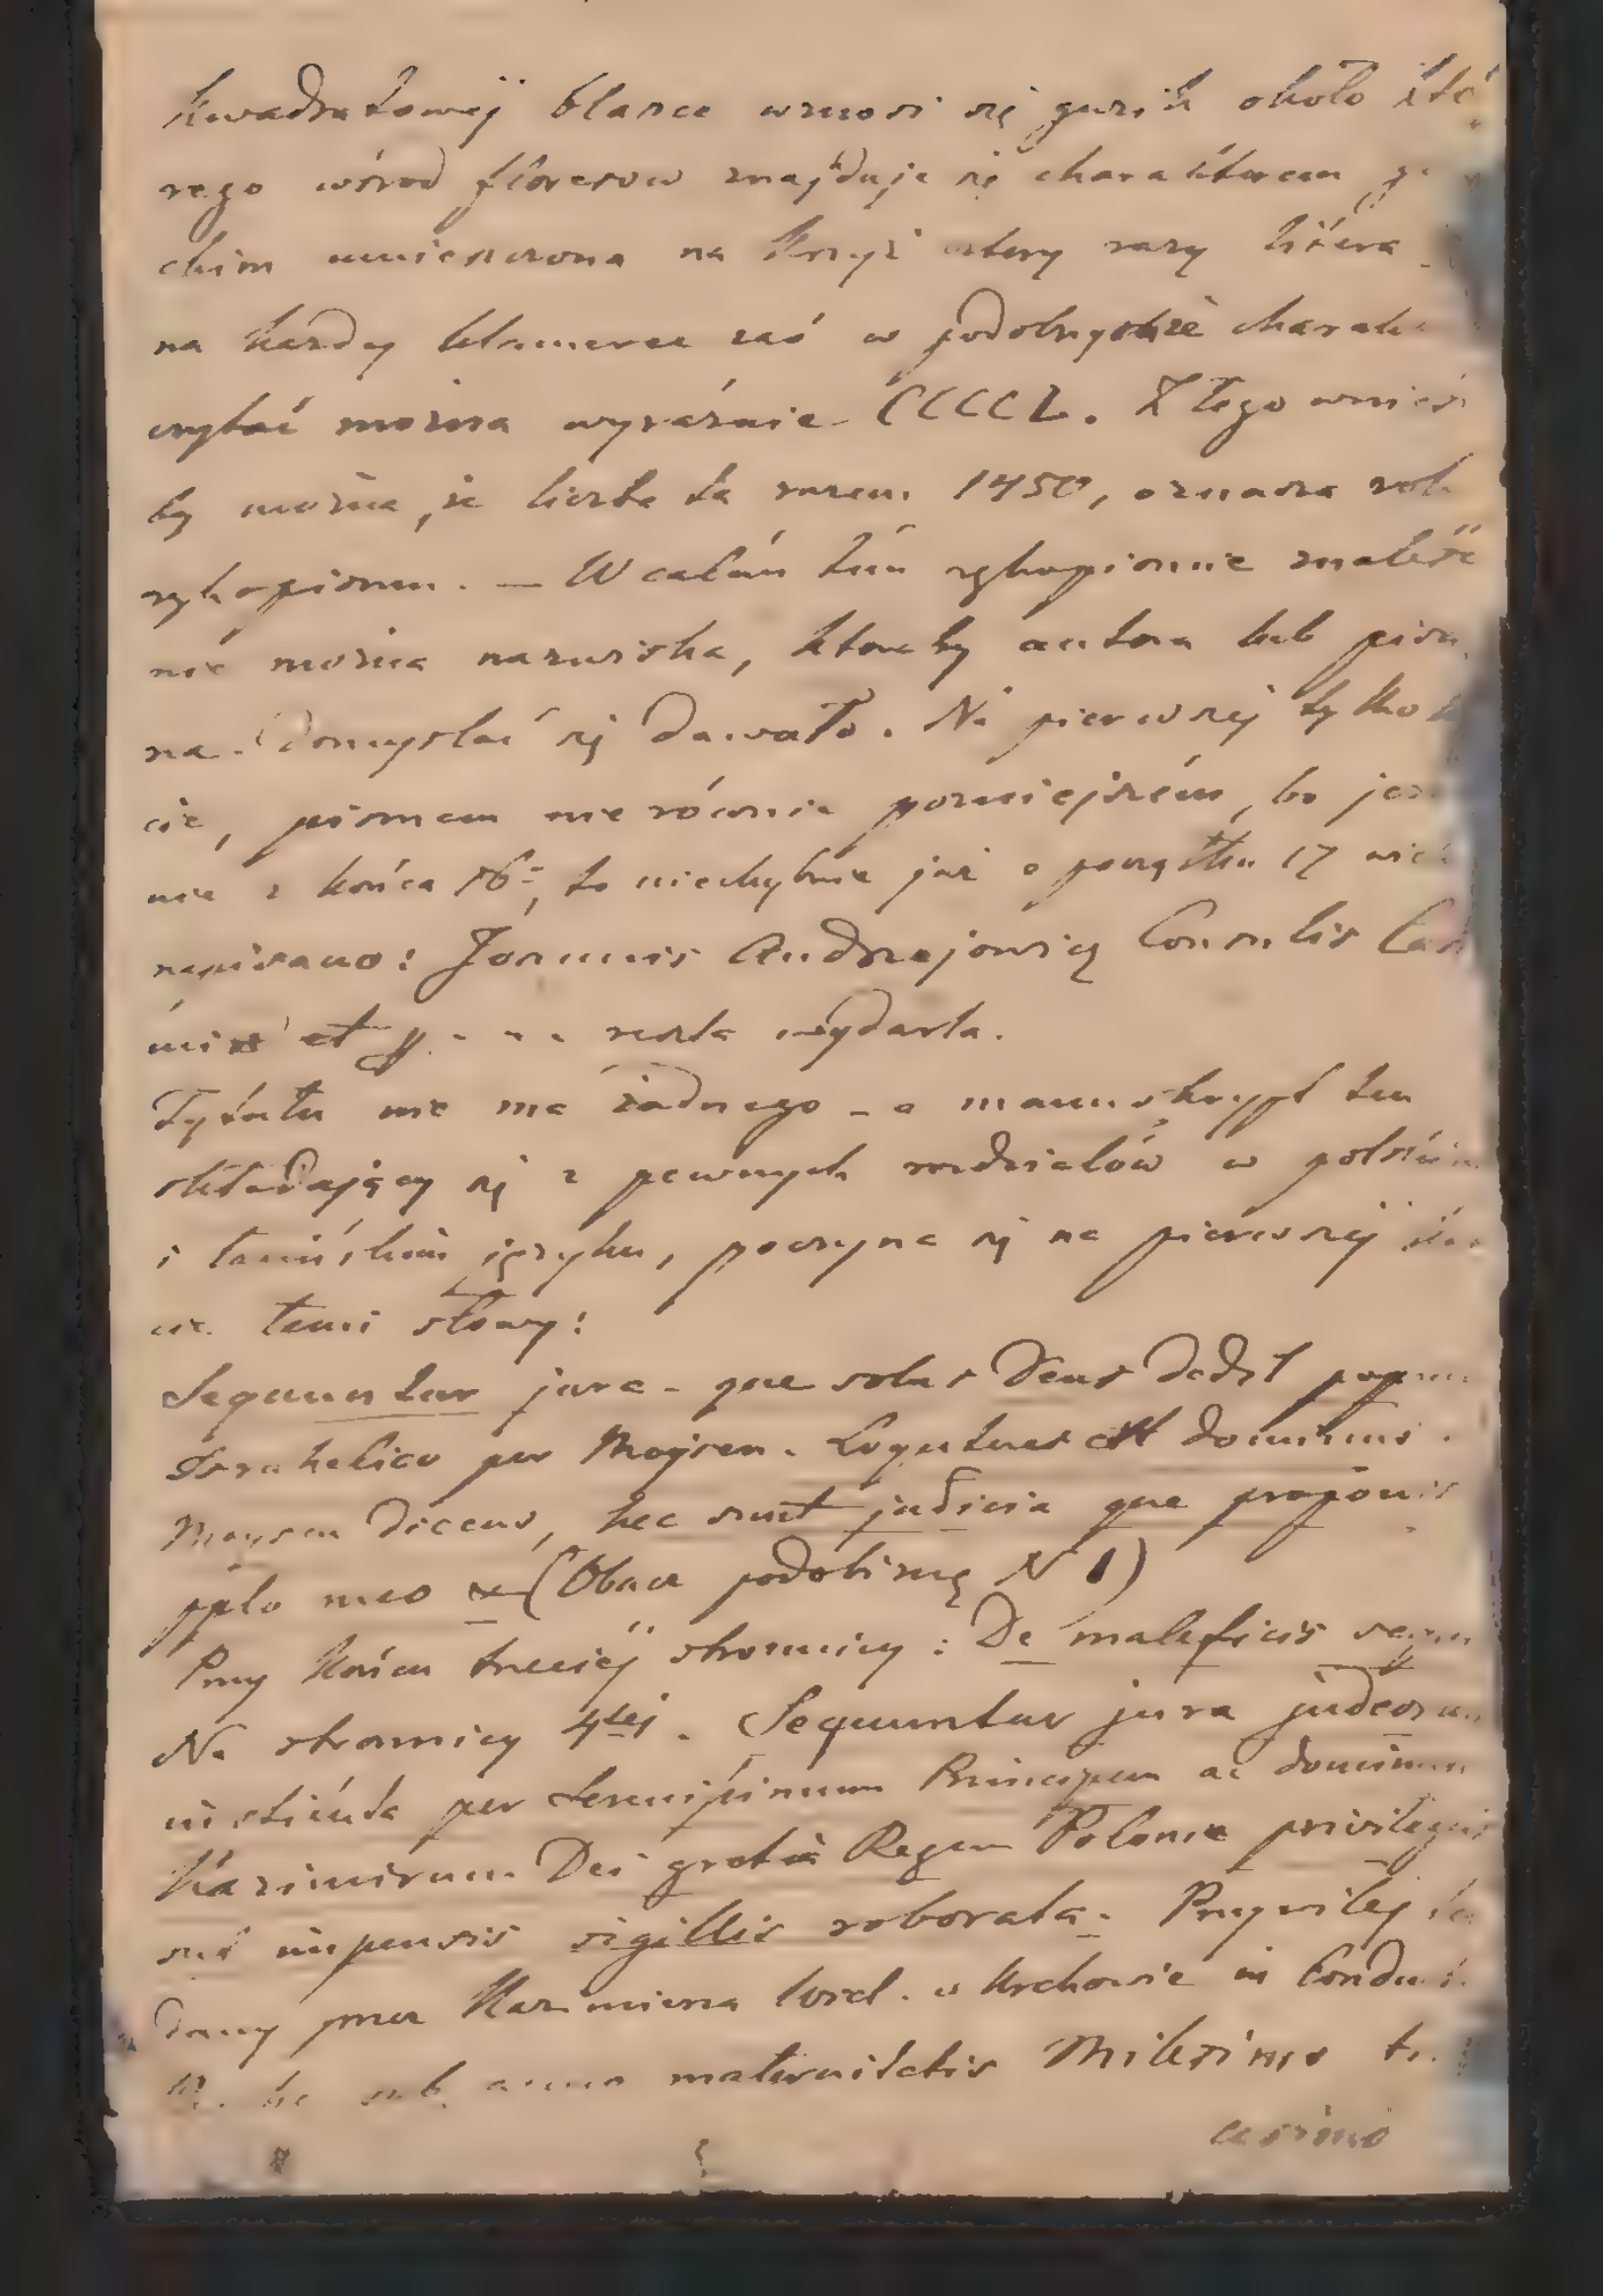 kwadratowéj blasce wznosi się guzik około któ
rego wśród floresow znajduje się charakterem
chim umieszczona na krzyż cztery razy litera
na każdey klamerce zaś w podobnymże charak
czytać można wyraźnie CCCCL. Z tego wnieść
by można, że liczba ta razem 1450, oznacza rok
rękopismu. — W całém tém rękopismie znaleść
nie można nazwiska, któreby autora lub pisa
na domyslać się dawało. Na pierwszéj tylko
cie, pismem nierównie pozniejszém, bo jeże
nie z końca 16, to niechybnie już z początku 17 wie
napisano: Joannis Andrzejowicz Consulis Cas
mir et p. - - - reszta wydarta.
Tytułu nie ma żadnego - a manuskrypt ten
składający się z pewnych rozdziałów w polskim
i łacińskim języku, poczyna się na pierwszéj
cie temi słowy:
Sequuntur jura - que solus Deus dedit
Israhelico per Moysen. Loqutus est dominus
Moysen dicens, hec sunt judicia que proponis
pplo meo (Obacz podobiznę N 1)
Przy końcu trzeciéj stronnicy: De maleficis
Na stronnicy 4téj. Sequuntur jura judeorum
instituta per Serenissimum Principem ac dominum
Kazimirum Dei gratia Regem Polonie privilegiis
suis impensis sigillis roborata. Przywiléj
dany przez Kazimierza w Krakowie in
sub anno Milesimo
cesimo